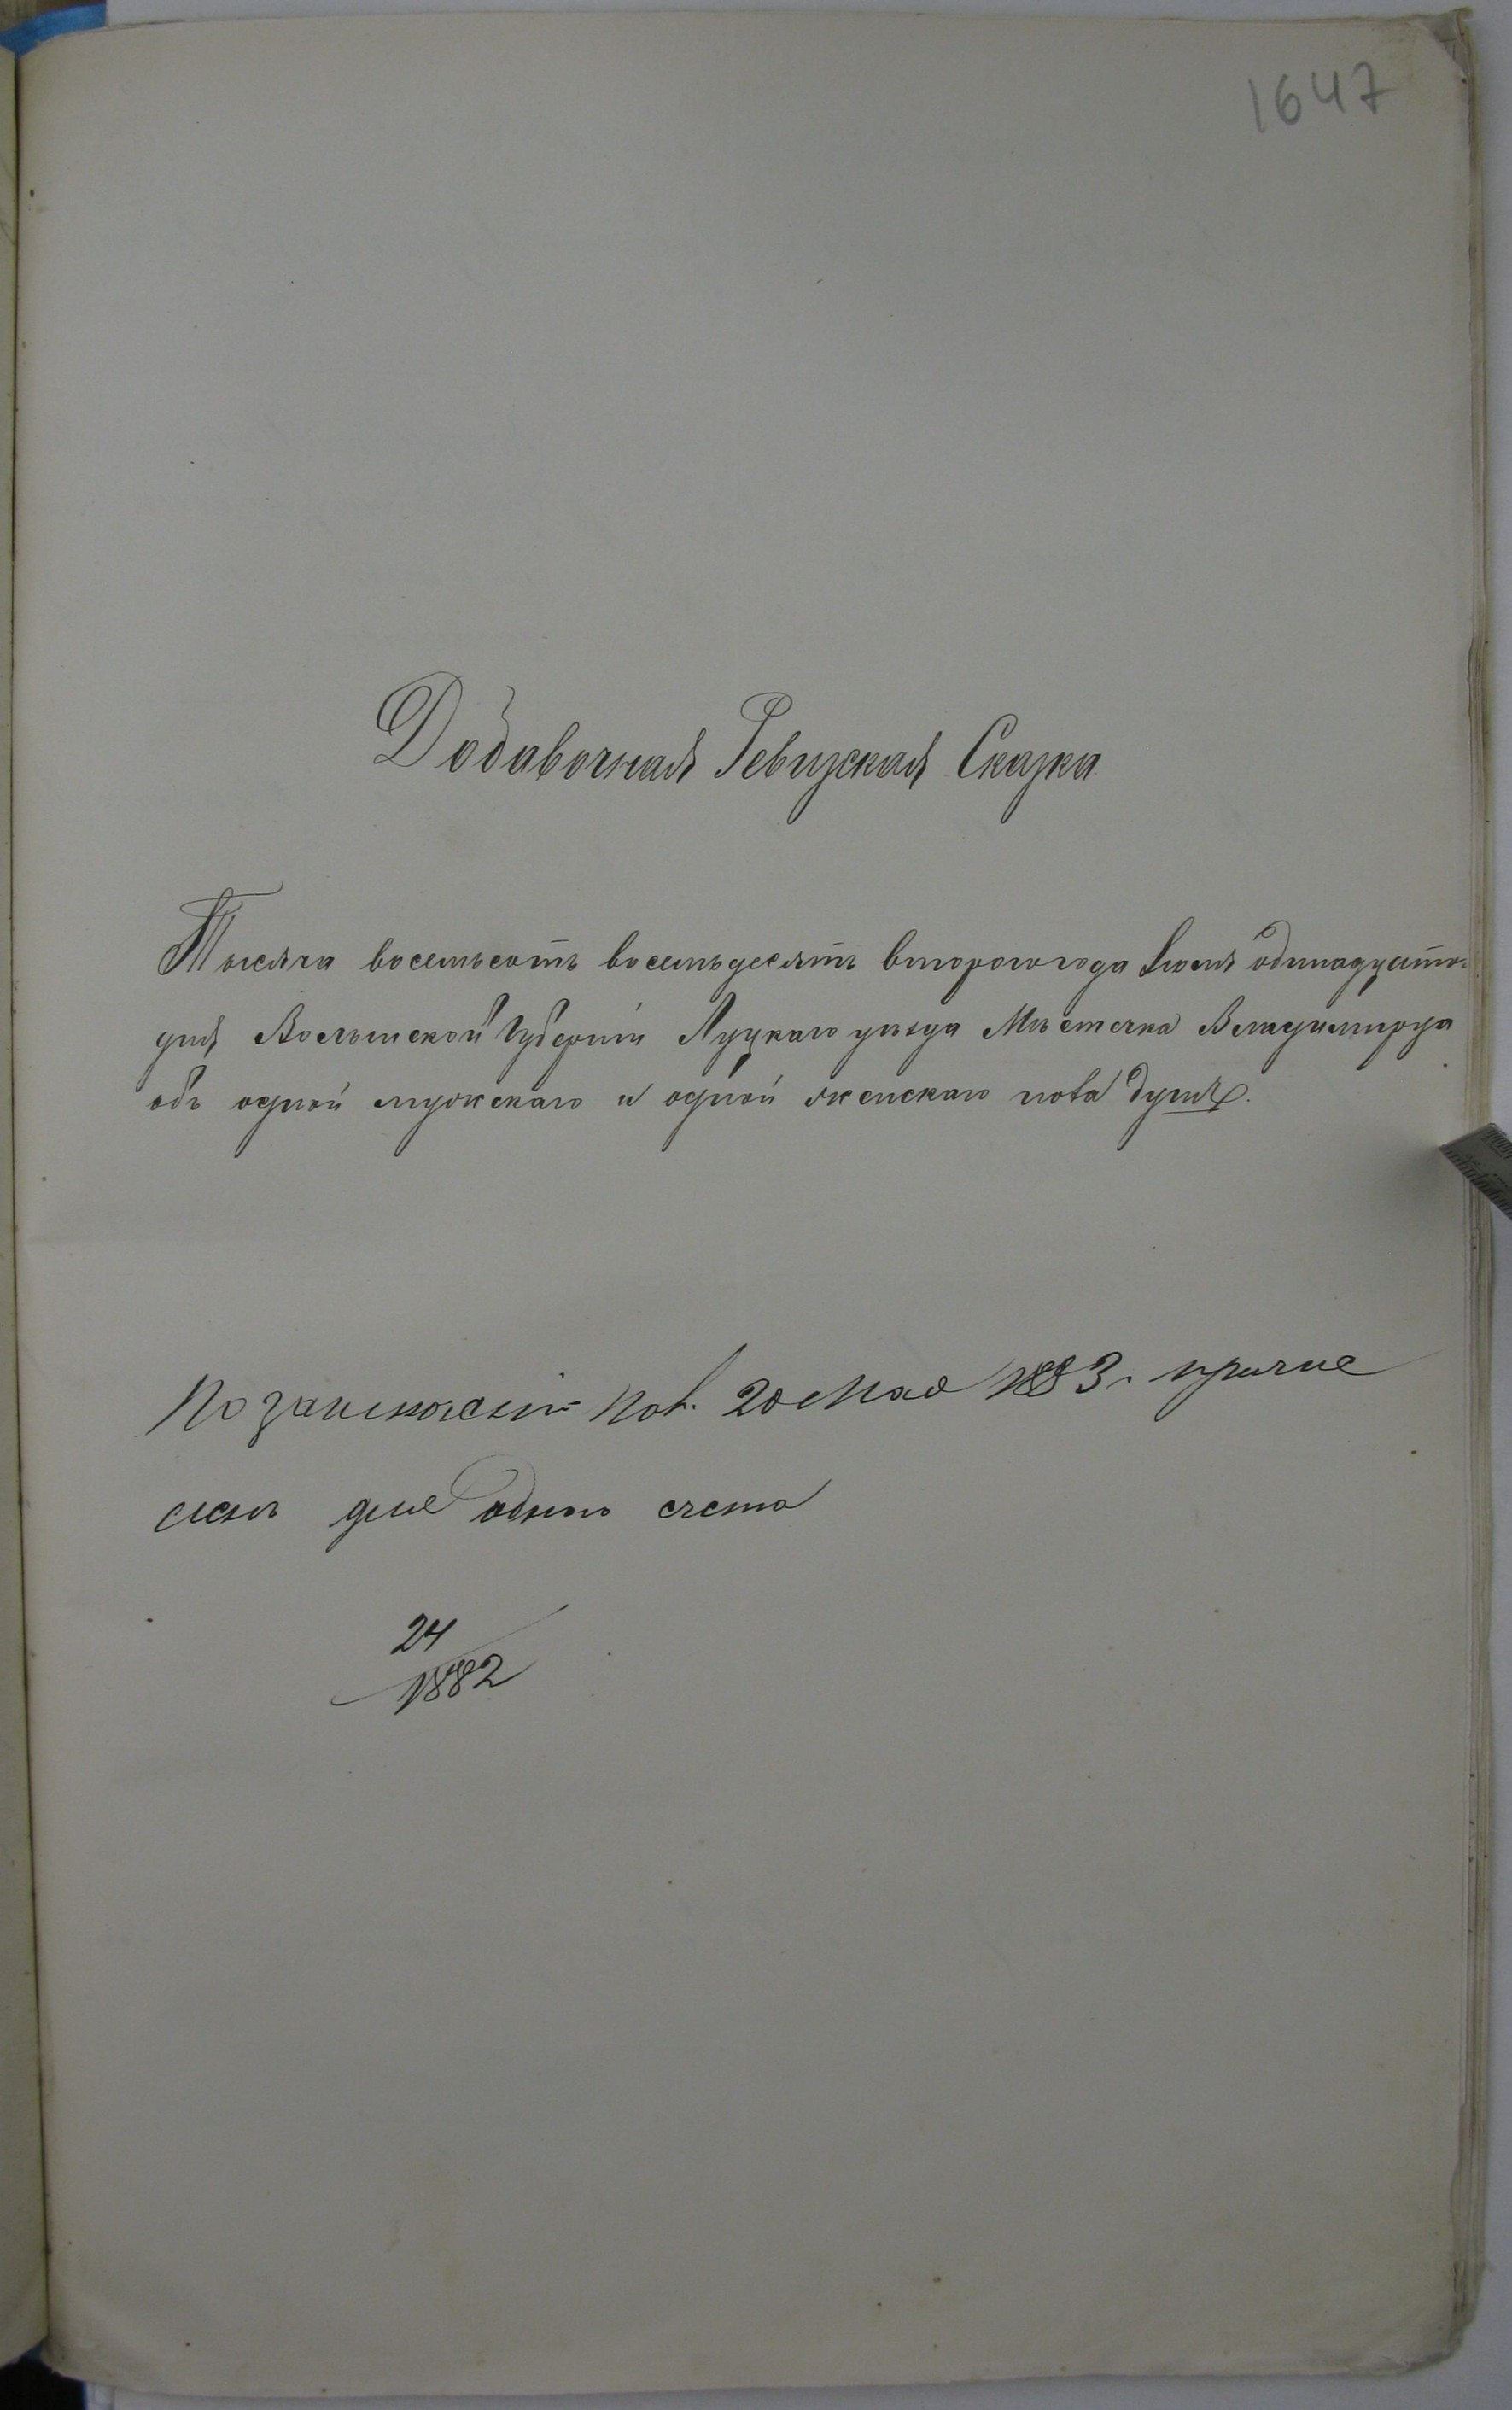 1647
Додавочная Ревизская Сказка
Тысяча восемьсотъ восемьдесятъ второго года Іюля одинадцато
дня Волынской Губерніи Луцкаго уѣзда Мѣстечка Владимирца
объ одной мужскаго и одной женскаго пола душѣ.
20 Мая 1883 г.
одного счета
24
1882